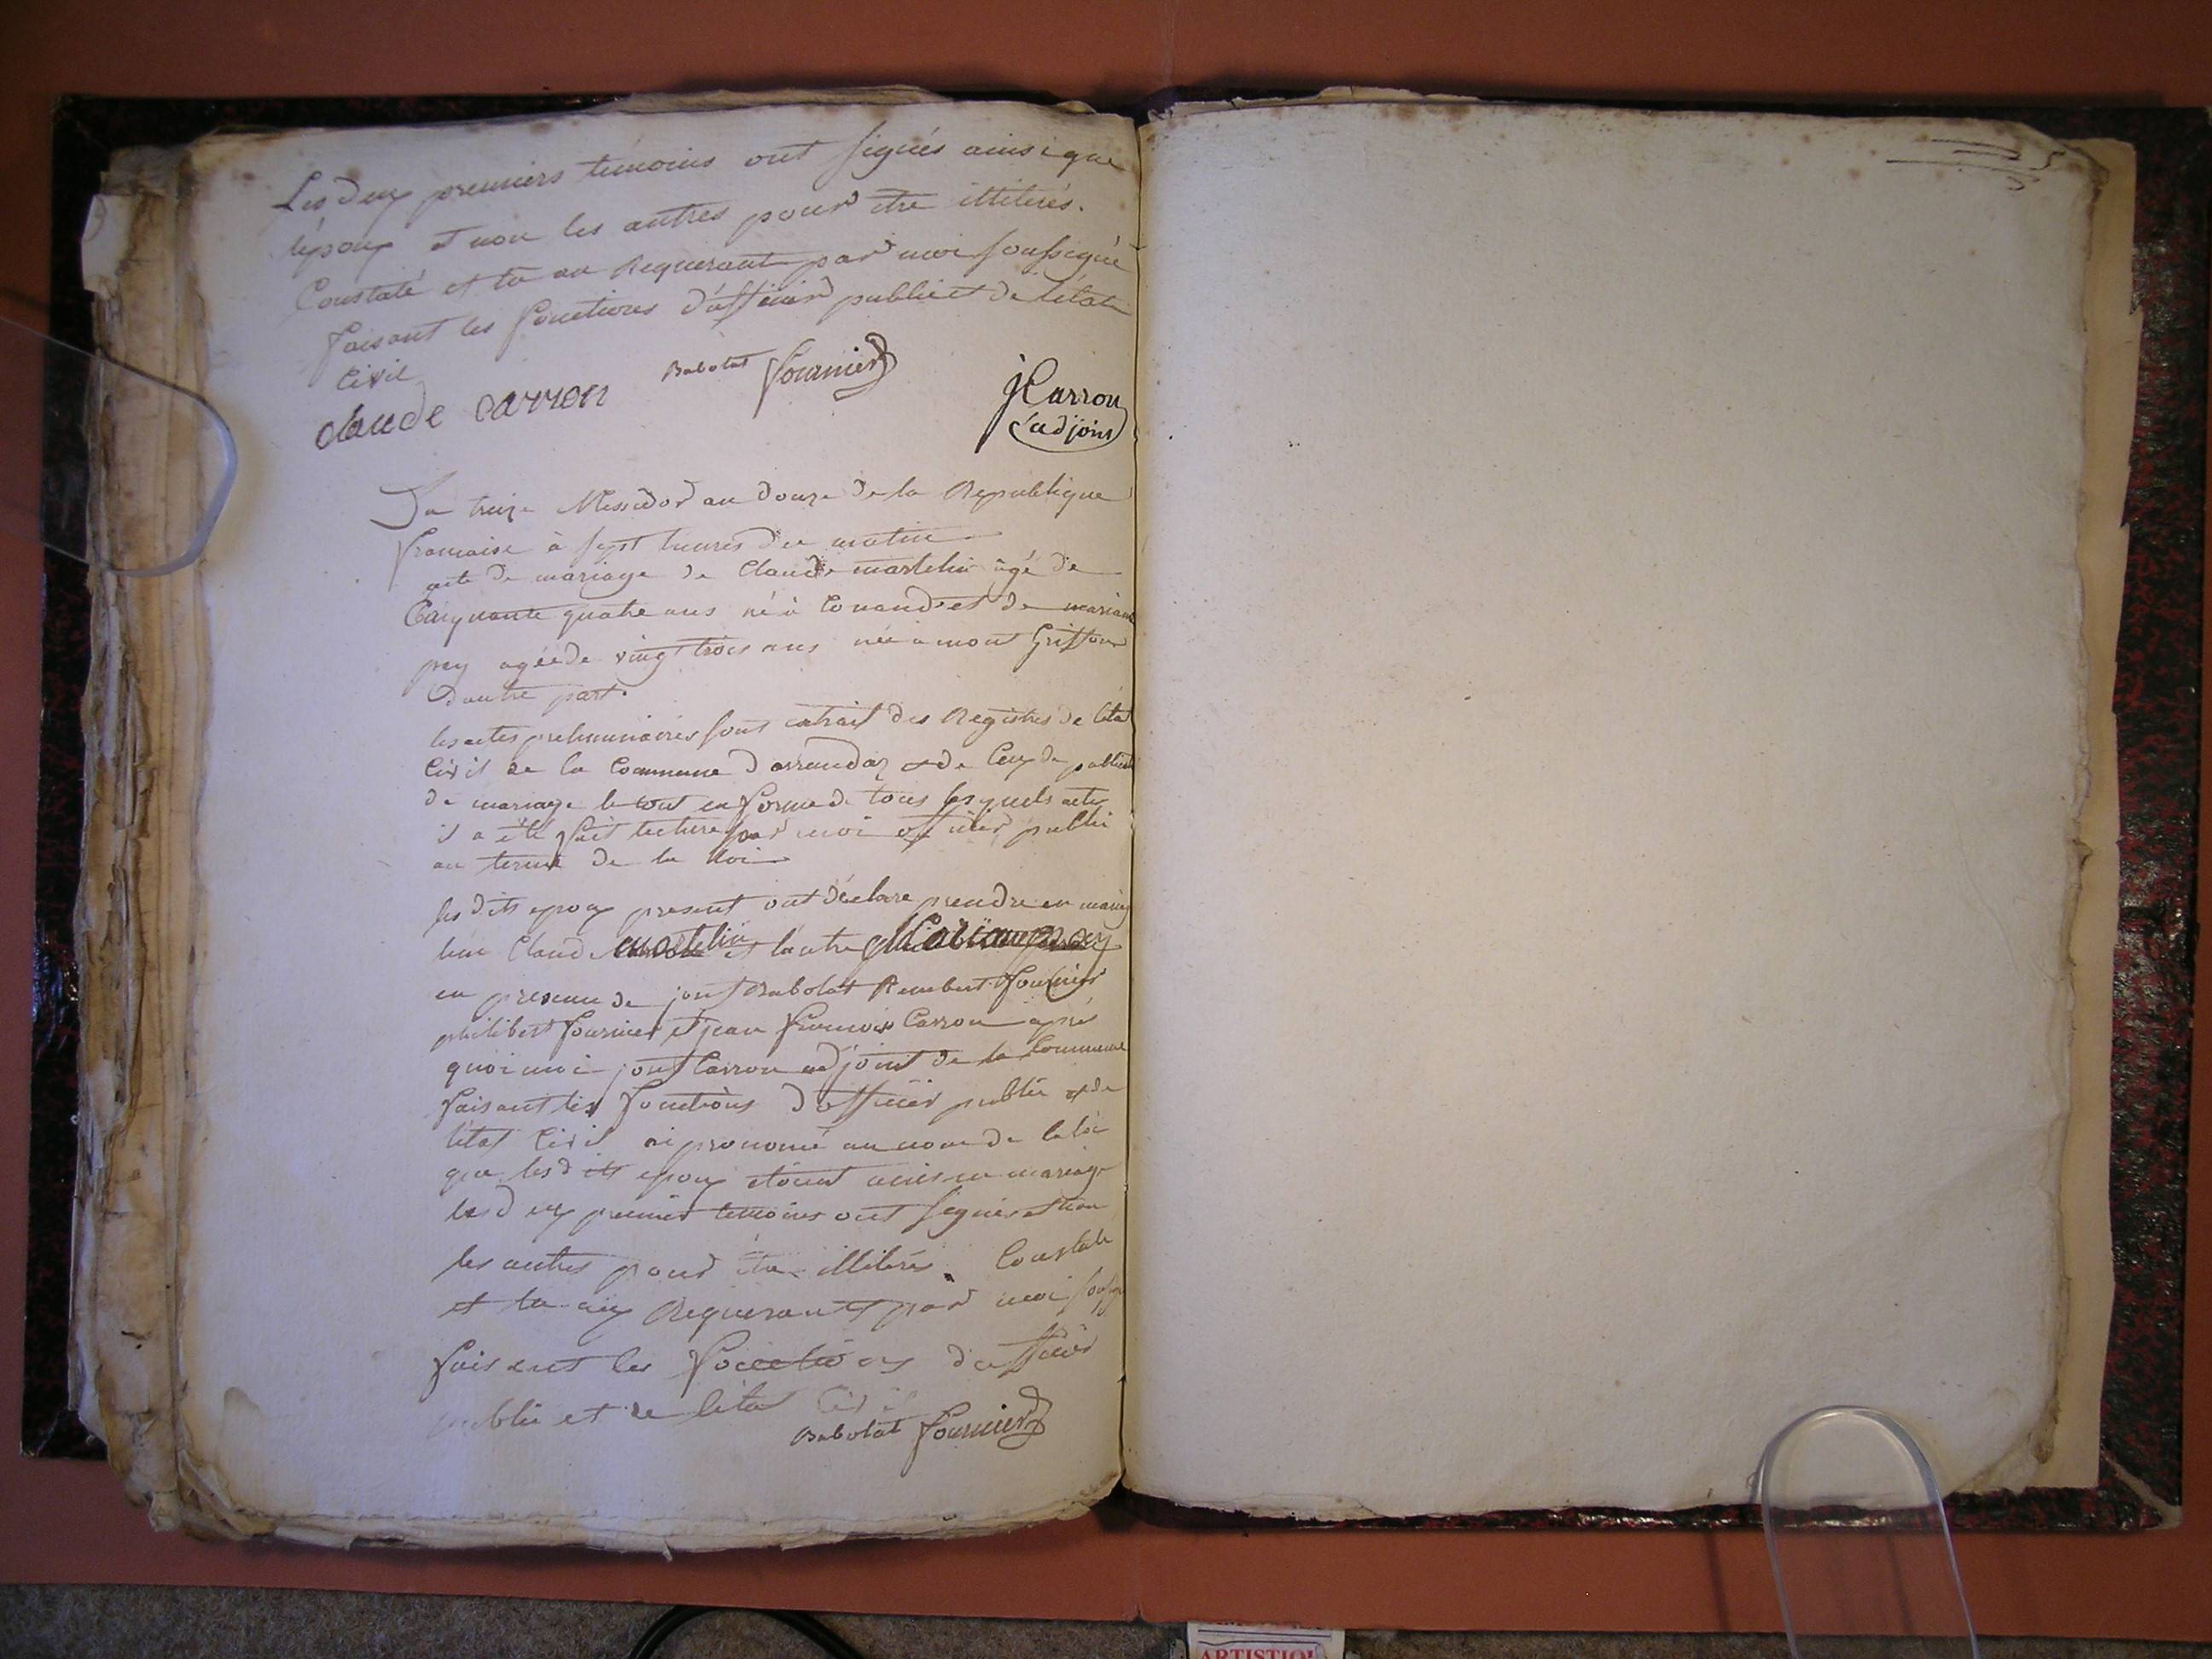 Les deux premiers temoins ont signés ainsi que
l'époux et non les autres pour être illiterés.
Constaté et lu au Requerant par moi soussigné
faisant les fonctions d'officier public et de l'état
Civil
Babolat fournier
claude carron
J Carron
adjoint
Du treize Messidor an douze de la Republique
francaise à sept heures du matin
acte de mariage de Claude martelin âgé de
Cinquante quatre ans né à Conand et de mariane
pey agée de vingt trois ans née a mont Griffon
Dautre part.
les actes preliminaires sont extrait des Registres de l'état
Civil de la Commune d'arrandaz et de Ceux de
de mariage le tout en forme de tous lesquels actes
il a été fait lecture par moi officier public
au terme de la Loi
les dits epoux present ont déclaré prendre en mariage
lun Claude martelin et lautre Mariane pey
en presence de Babolat Rembert fournier
philibert fournier et jean francois Carron après
quoi moi Carron adjoint de la Commune
faisant les fonctions d'officier public et de
l'état Civil ai prononcé au nom de la loi
que lesdits epoux étoient unis en mariage
les deux premier temoins ont signés et non
les autres pour être illiterés. Constaté
et lu aux Requerants par moi
faisant les fonctions d'officier
public et de l'état Civil
Babolat fournier
ARTISTIQ